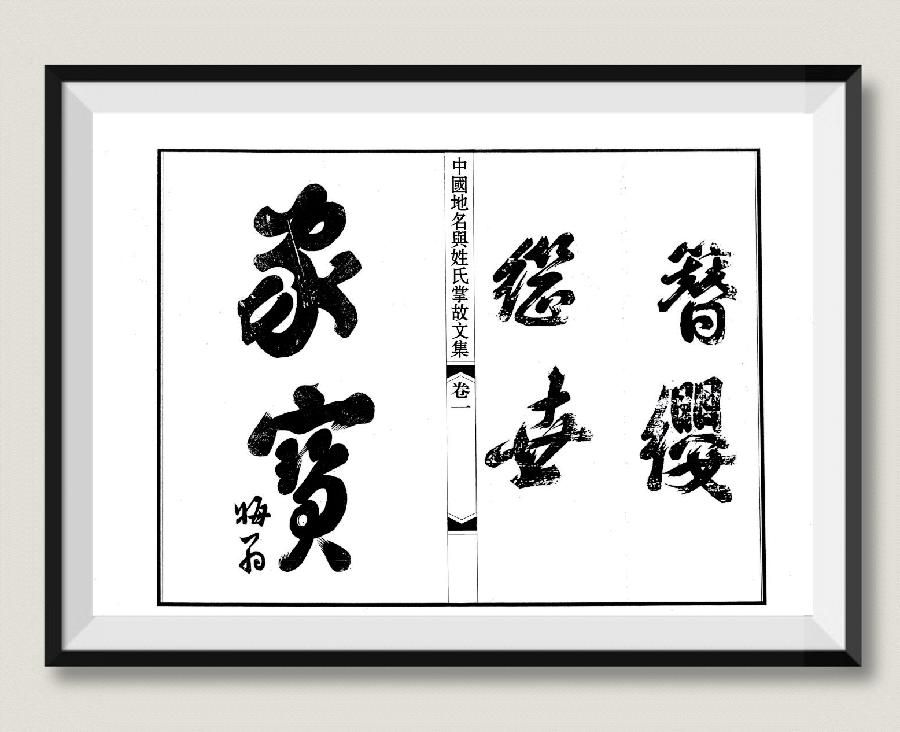 簪纓
继世
中國地名與姓氏掌故文集
卷一
家寶
晦翁